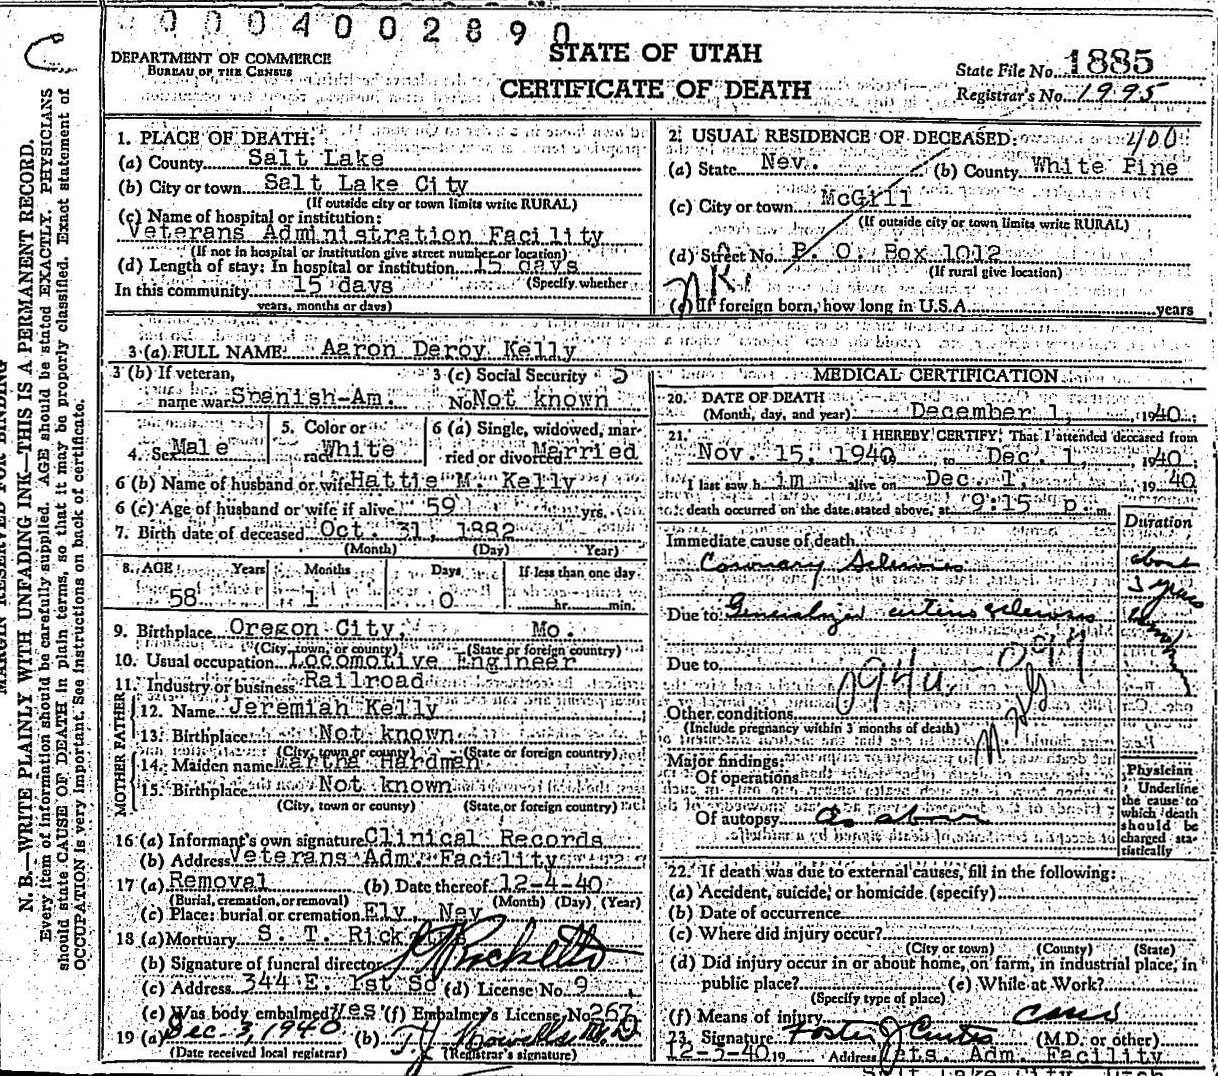 0004002890
C
DEPARTMENT OF COMMERCE
BUREAU OF THE CENSUS
STATE OF UTAH
CERTIFICATE OF DEATH
State File No. 1885
Registrar's No. 1995
MARGIN RESERVED FOR BINDING
N. B.—WRITE PLAINLY WITH UNFADING INK—THIS IS A PERMANENT RECORD.
Every item of information should be carefully supplied. AGE should be stated EXACTLY. PHYSICIANS
should state CAUSE OF DEATH in plain terms, so that it may be properly classified. Exact statement of
OCCUPATION is very important. See instructions on back of certificate.
1. PLACE OF DEATH:
(a) County Salt Lake
(b) City or town Salt Lake City
(If outside city or town limits write RURAL)
(c) Name of hospital or institution:
Veterans Administration Facility
(If not in hospital or institution give street number or location)
(d) Length of stay: In hospital or institution 15 days
(Specify whether
In this community 15 days
years, months or days)
2. USUAL RESIDENCE OF DECEASED: 400
(a) State Nev. (b) County White Pine
(c) City or town McGill
(If outside city or town limits write RURAL)
(d) Street No. P. O. Box 1012
(If rural give location)
N.R.
(e) If foreign born, how long in U.S.A. years
3 (a) FULL NAME Aaron Deroy Kelly
3 (b) If veteran, name war Spanish-Am.
3 (c) Social Security No. Not known
5
4. Sex Male
5. Color or race White
6 (a) Single, widowed, married or divorced Married
6 (b) Name of husband or wife Hattie M. Kelly
6 (c) Age of husband or wife if alive 59 yrs.
7. Birth date of deceased Oct. 31, 1882
(Month) (Day) Year)
8. AGE Years Months Days If less than one day
58 1 0 hr. min.
9. Birthplace Oregon City, Mo.
(City, town, or county) (State or foreign country)
10. Usual occupation Locomotive Engineer
11. Industry or business Railroad
FATHER
12. Name Jeremiah Kelly
13. Birthplace Not known
(City, town or county) (State or foreign country)
MOTHER
14. Maiden name Martha Hardman
15. Birthplace Not known
(City, town or county) (State, or foreign country)
16 (a) Informant's own signature Clinical Records
(b) Address Veterans Adm. Facility
17 (a) Removal (b) Date thereof 12-4-40
(Burial, cremation, or removal) (Month) (Day) (Year)
(c) Place: burial or cremation Ely, Nev
18 (a) Mortuary S. T. Ricketts
(b) Signature of funeral director Ricketts
(c) Address 344 E. 1st So (d) License No. 9
(e) Was body embalmed? yes (f) Embalmer's License No. 267
19 (a) Dec. 3, 1940 (b) T. J. Howells M. D
(Date received local registrar) (Registrar's signature)
MEDICAL CERTIFICATION
20. DATE OF DEATH
(Month, day, and year) December 1, 1940
21. I HEREBY CERTIFY, That I attended deceased from
Nov. 15, 1940 to Dec. 1, 1940
I last saw h im alive on Dec. 1, 1940
death occurred on the date stated above, at 9:15 p. m.
Duration
Immediate cause of death
Coronary Sclerosis about 3 years
Due to Generalized arteriosclerosis
Due to
094a
Other conditions
(Include pregnancy within 3 months of death)
Major findings:
Of operations
Of autopsy as above
Physician
Underline
the cause to
which death
should be
charged sta-
tistically
22. If death was due to external causes, fill in the following:
(a) Accident, suicide, or homicide (specify)
(b) Date of occurrence
(c) Where did injury occur?
(City or town) (County) (State)
(d) Did injury occur in or about home, on farm, in industrial place, in
public place? (e) While at Work?
(Specify type of place)
(f) Means of injury
23. Signature Foster J Curtis (M.D. or other)
12-3-40 19 Address Vets. Adm. Facility
Salt Lake City, Utah